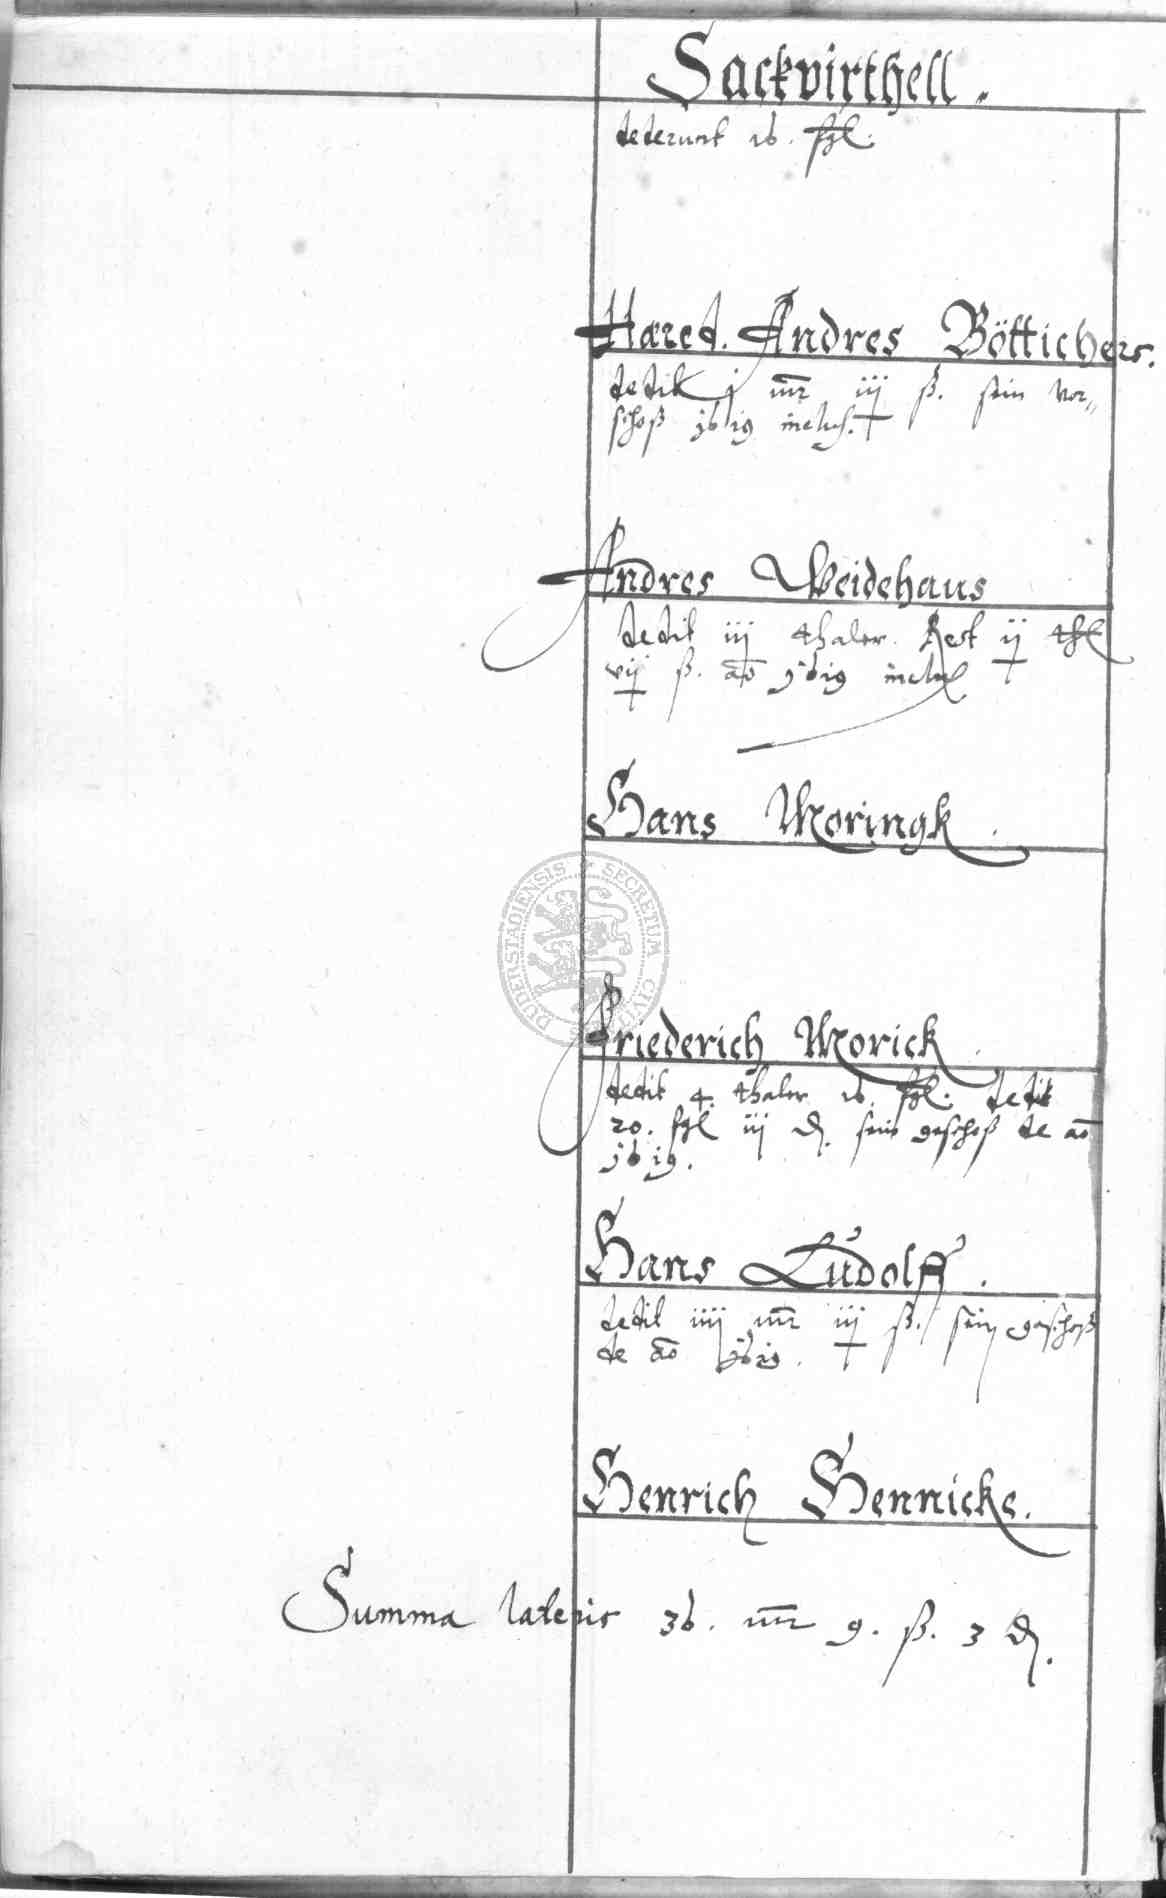 Sackvirthell.
dederunt 16. fgl.
Hæred. Andres Böttichers.
dedit j mr iij ß. sein vor„
schoß 1619 inclus.
Andres Weidehaus
dedit iij thaler. Rest ij thl
vij ß. ao 1619 inclus
Hans Moringk.
DUDERSTADIENSIS SECRETUM CIVITATIS
Friederich Morick.
dedit 4. thaler 16. fgl. dedit
20. fgl iij d. sein geschoß de ao
1619.
Hans Ludolff.
dedit iiij mr iij ß. sein geschoß
de ao 1619.
Henrich Hennicke.
Summa lateris 36. mr 9. ß. 3 d.